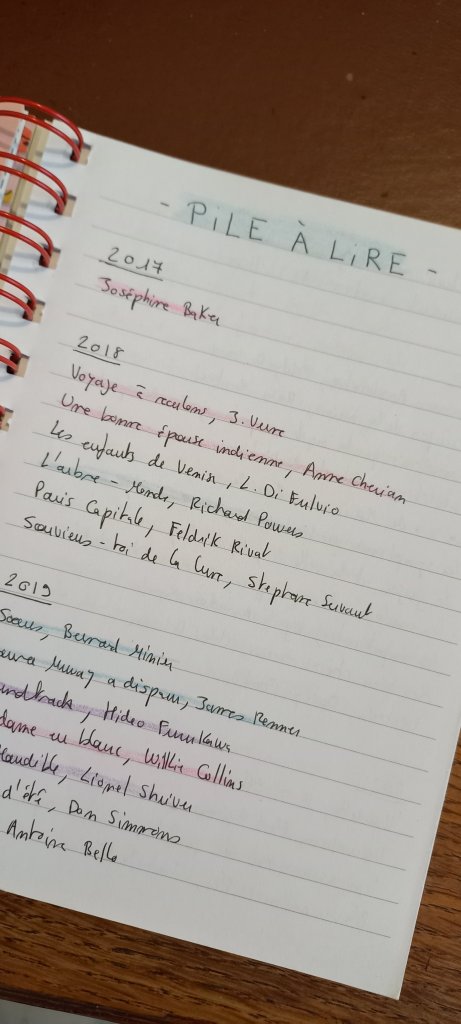 - PiLE À LiRE -
2017
Joséphine Baker
2018
Voyage à reculons, J. Verne
Une bonne épouse indienne, Anne Cherian
Les enfants de Venise, L. Di Fulvio
L'arbre-Monde, Richard Powers
Paris Capitale, Feldrik Rivat
Souviens-toi de la Lune, Stephane Servant
2019
Soeurs, Bernard Minier
aura Murray a disparu, James Renner
undtrack, Hideo Furukawa
dame en blanc, Wilkie Collins
Mandible, Lionel Shriver
d'été, Dan Simmons
Antoine Bello